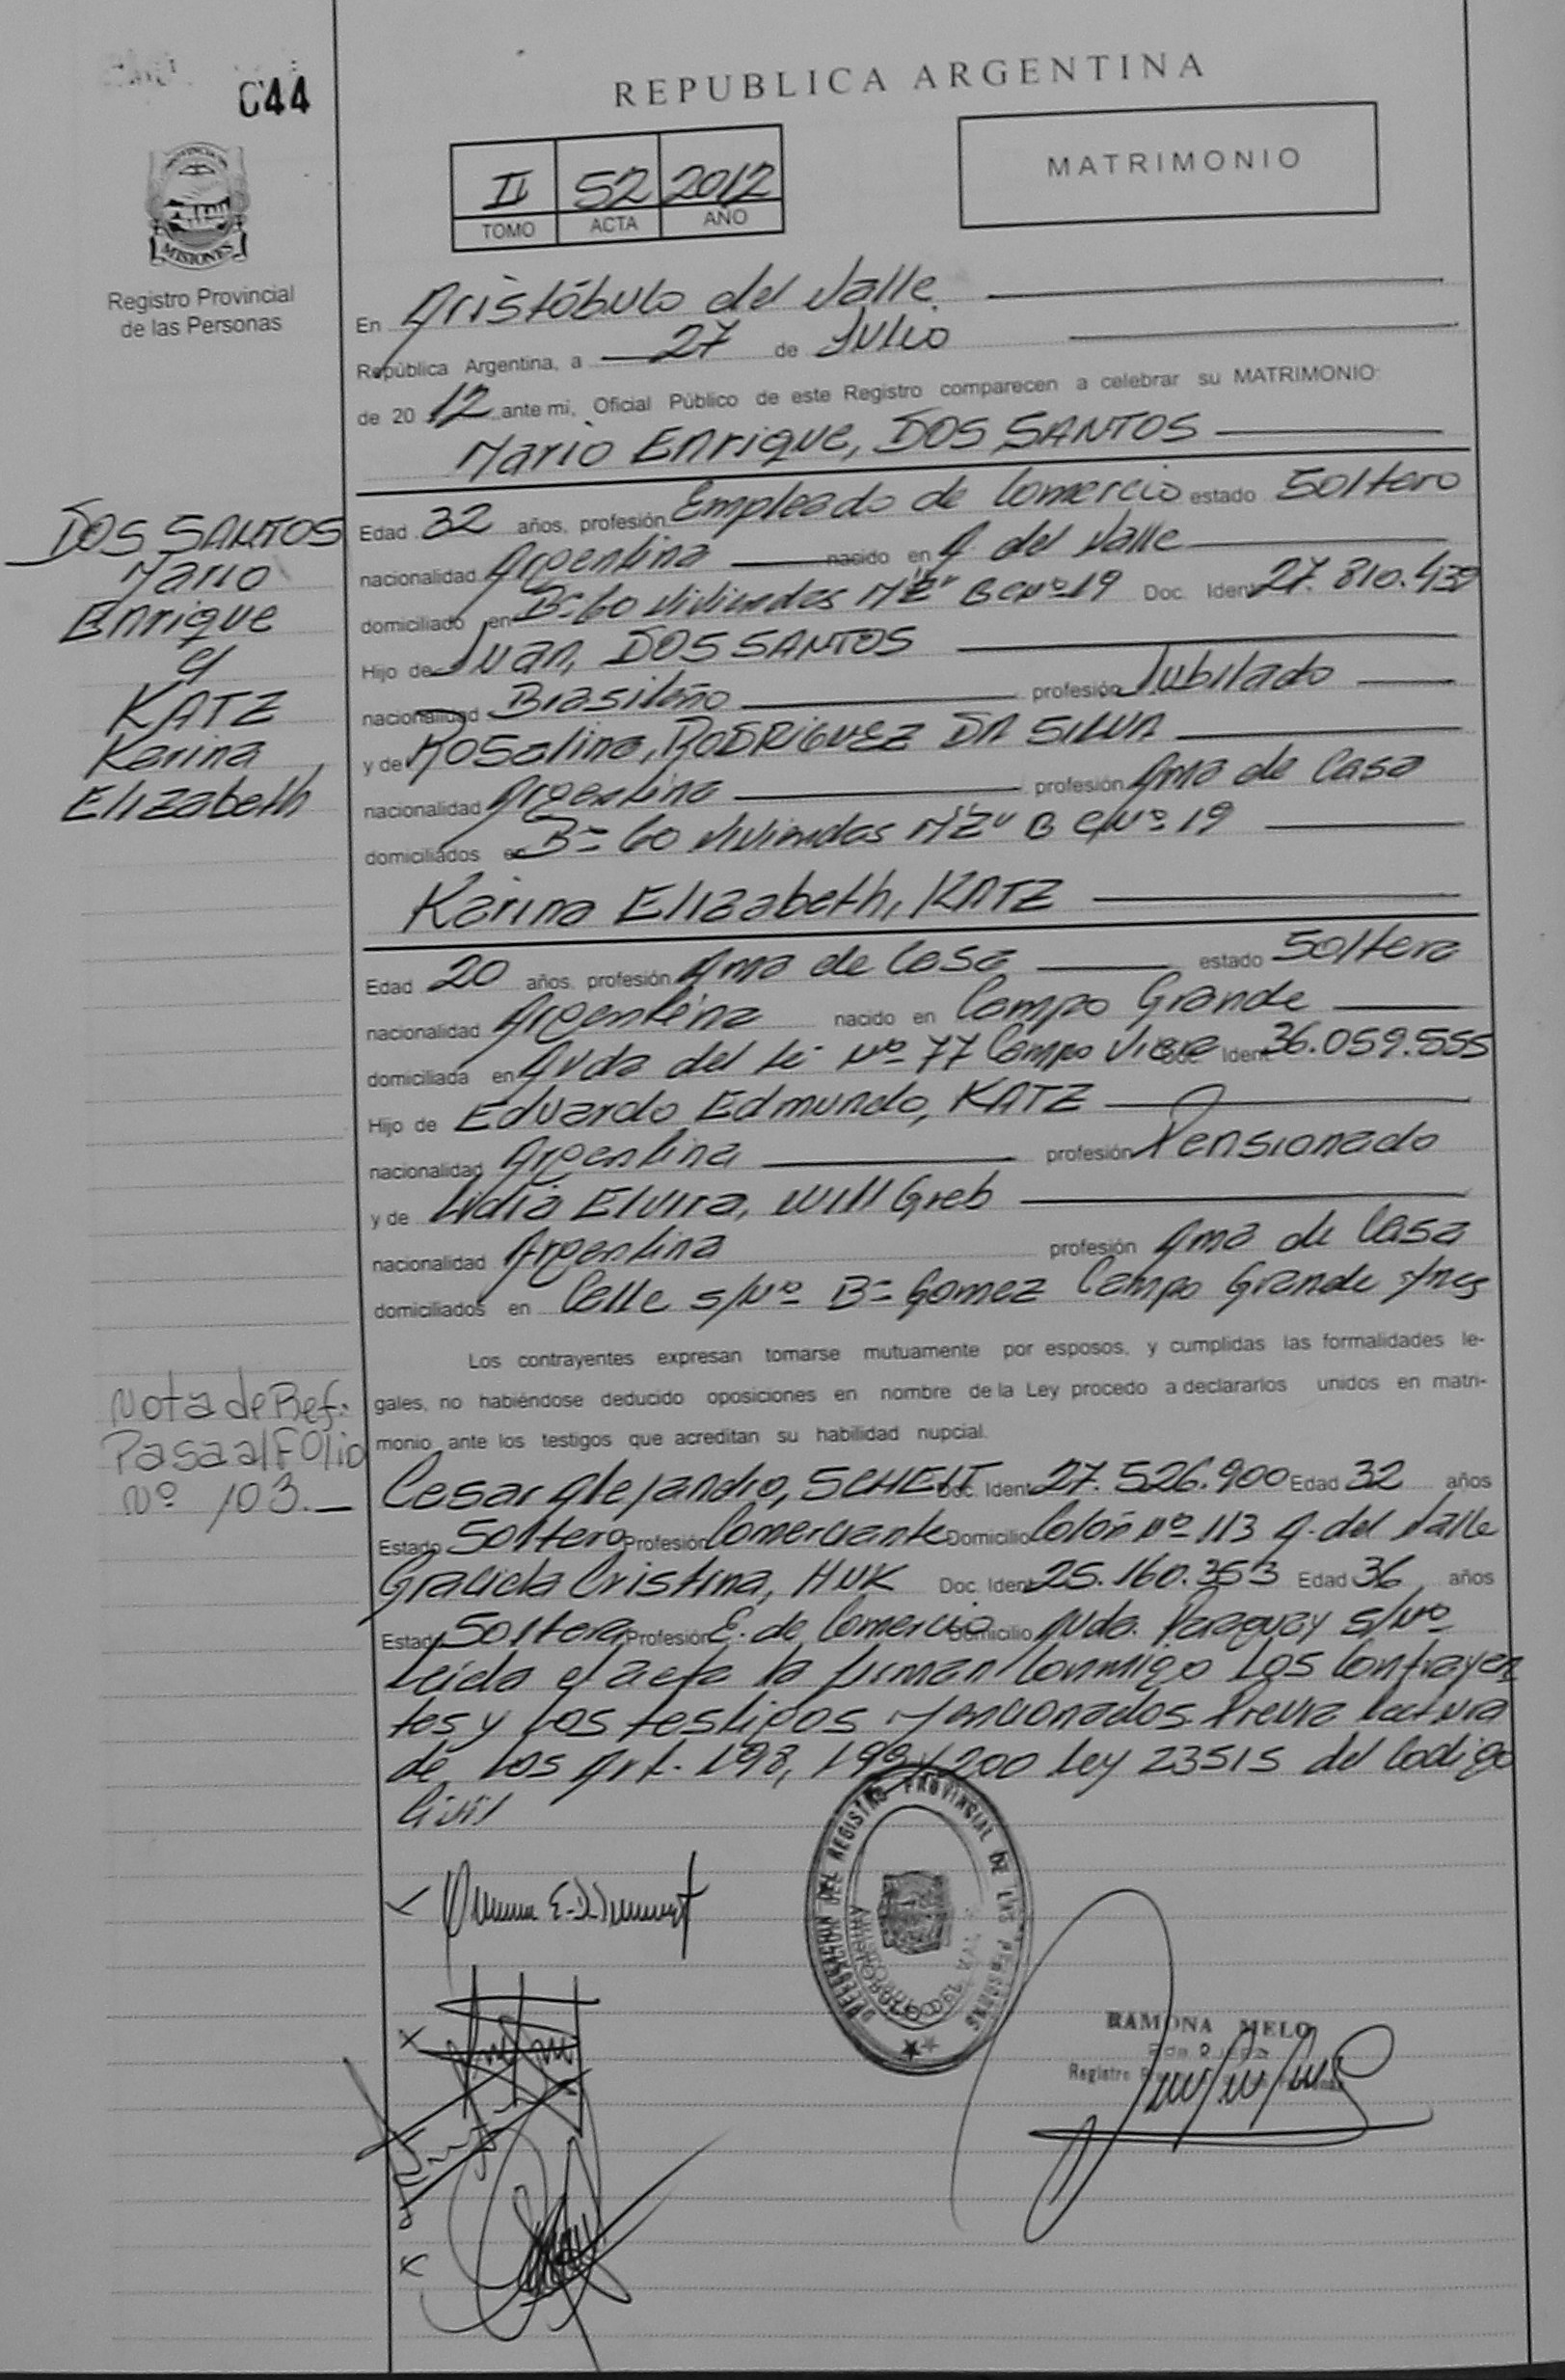 C44
REPUBLICA ARGENTINA
II 52 2012
TOMO ACTA AÑO
MATRIMONIO
PROVINCIA DE
MISIONES
Registro Provincial
de las Personas
En Aristóbulo del Valle
República Argentina, a 27 de Julio
de 20 12 ante mi, Oficial Público de este Registro comparecen a celebrar su MATRIMONIO:
Mario Enrique, DOS SANTOS
DOS SANTOS
Mario
Enrique
y
KATZ
Karina
Elizabeth
Edad 32 años, profesión Empleado de Comercio estado Soltero
nacionalidad Argentina nacido en A. del Valle
domiciliado en B= 60 Viviendas MZ" B C/Nº 19 Doc. Ident 27.810.43
Hijo de Juan, DOS SANTOS
nacionalidad Brasileño profesión Jubilado
y de Rosalina, RODRIGUEZ DA SILVA
nacionalidad Argentina profesión Ama de Casa
domiciliados en B= 60 Viviendas MZ" B C/Nº 19
Karina Elizabeth, KATZ
Edad 20 años, profesión Ama de Casa estado Soltera
nacionalidad Argentina nacido en Campo Grande
domiciliada en Avda del Té Nº 77 Campo Viera Doc. Ident 36.059.555
Hijo de Eduardo Edmundo, KATZ
nacionalidad Argentina profesión Pensionado
y de Lidia Elvira, Will Greb
nacionalidad Argentina profesión Ama de Casa
domiciliados en Calle s/Nº B= Gomez Campo Grande Mnes
Los contrayentes expresan tomarse mutuamente por esposos, y cumplidas las formalidades le-
gales, no habiéndose deducido oposiciones en nombre de la Ley procedo a declararlos unidos en matri-
monio ante los testigos que acreditan su habilidad nupcial.
Nota de Ref.
Pasa al Folio
Nº 103.—
Cesar Alejandro, SCHEIT Doc. Ident 27.526.900 Edad 32 años
Estado Soltero Profesión Comerciante Domicilio Colón Nº 113 A. del Valle
Graciela Cristina, HUK Doc. Ident 25.160.353 Edad 36 años
Estado Soltera Profesión E. de Comercio Domicilio Avda. Paraguay s/Nº
Leída el acta la firman Conmigo Los Contrayen
tes y Los testigos Mencionados Previa Lectura
de Los Art. 198, 199 y 200 Ley 23515 del Codigo
Civil
DELEGACION DEL REGISTRO PROVINCIAL DE LAS PERSONAS
ARISTOBULO DEL VALLE
RAMONA MELO
Registro